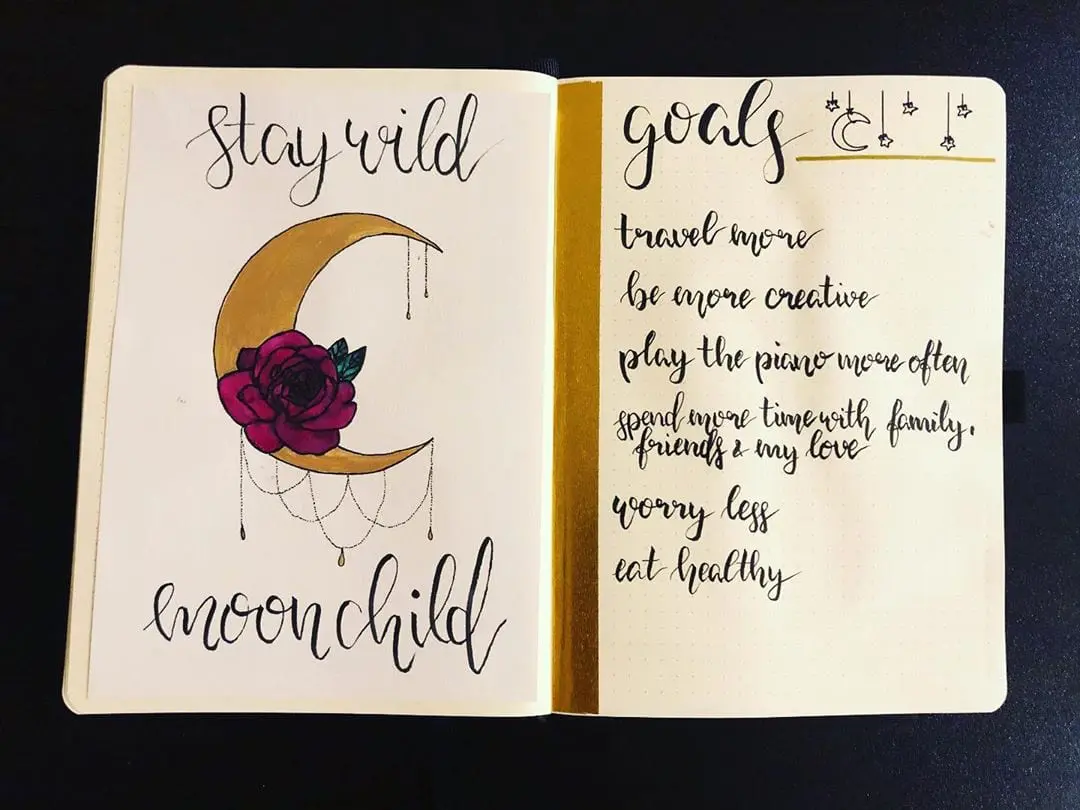 stay wild
moon child
goals
travel more
be more creative
play the piano more often
spend more time with family,
friends & my love
worry less
eat healthy